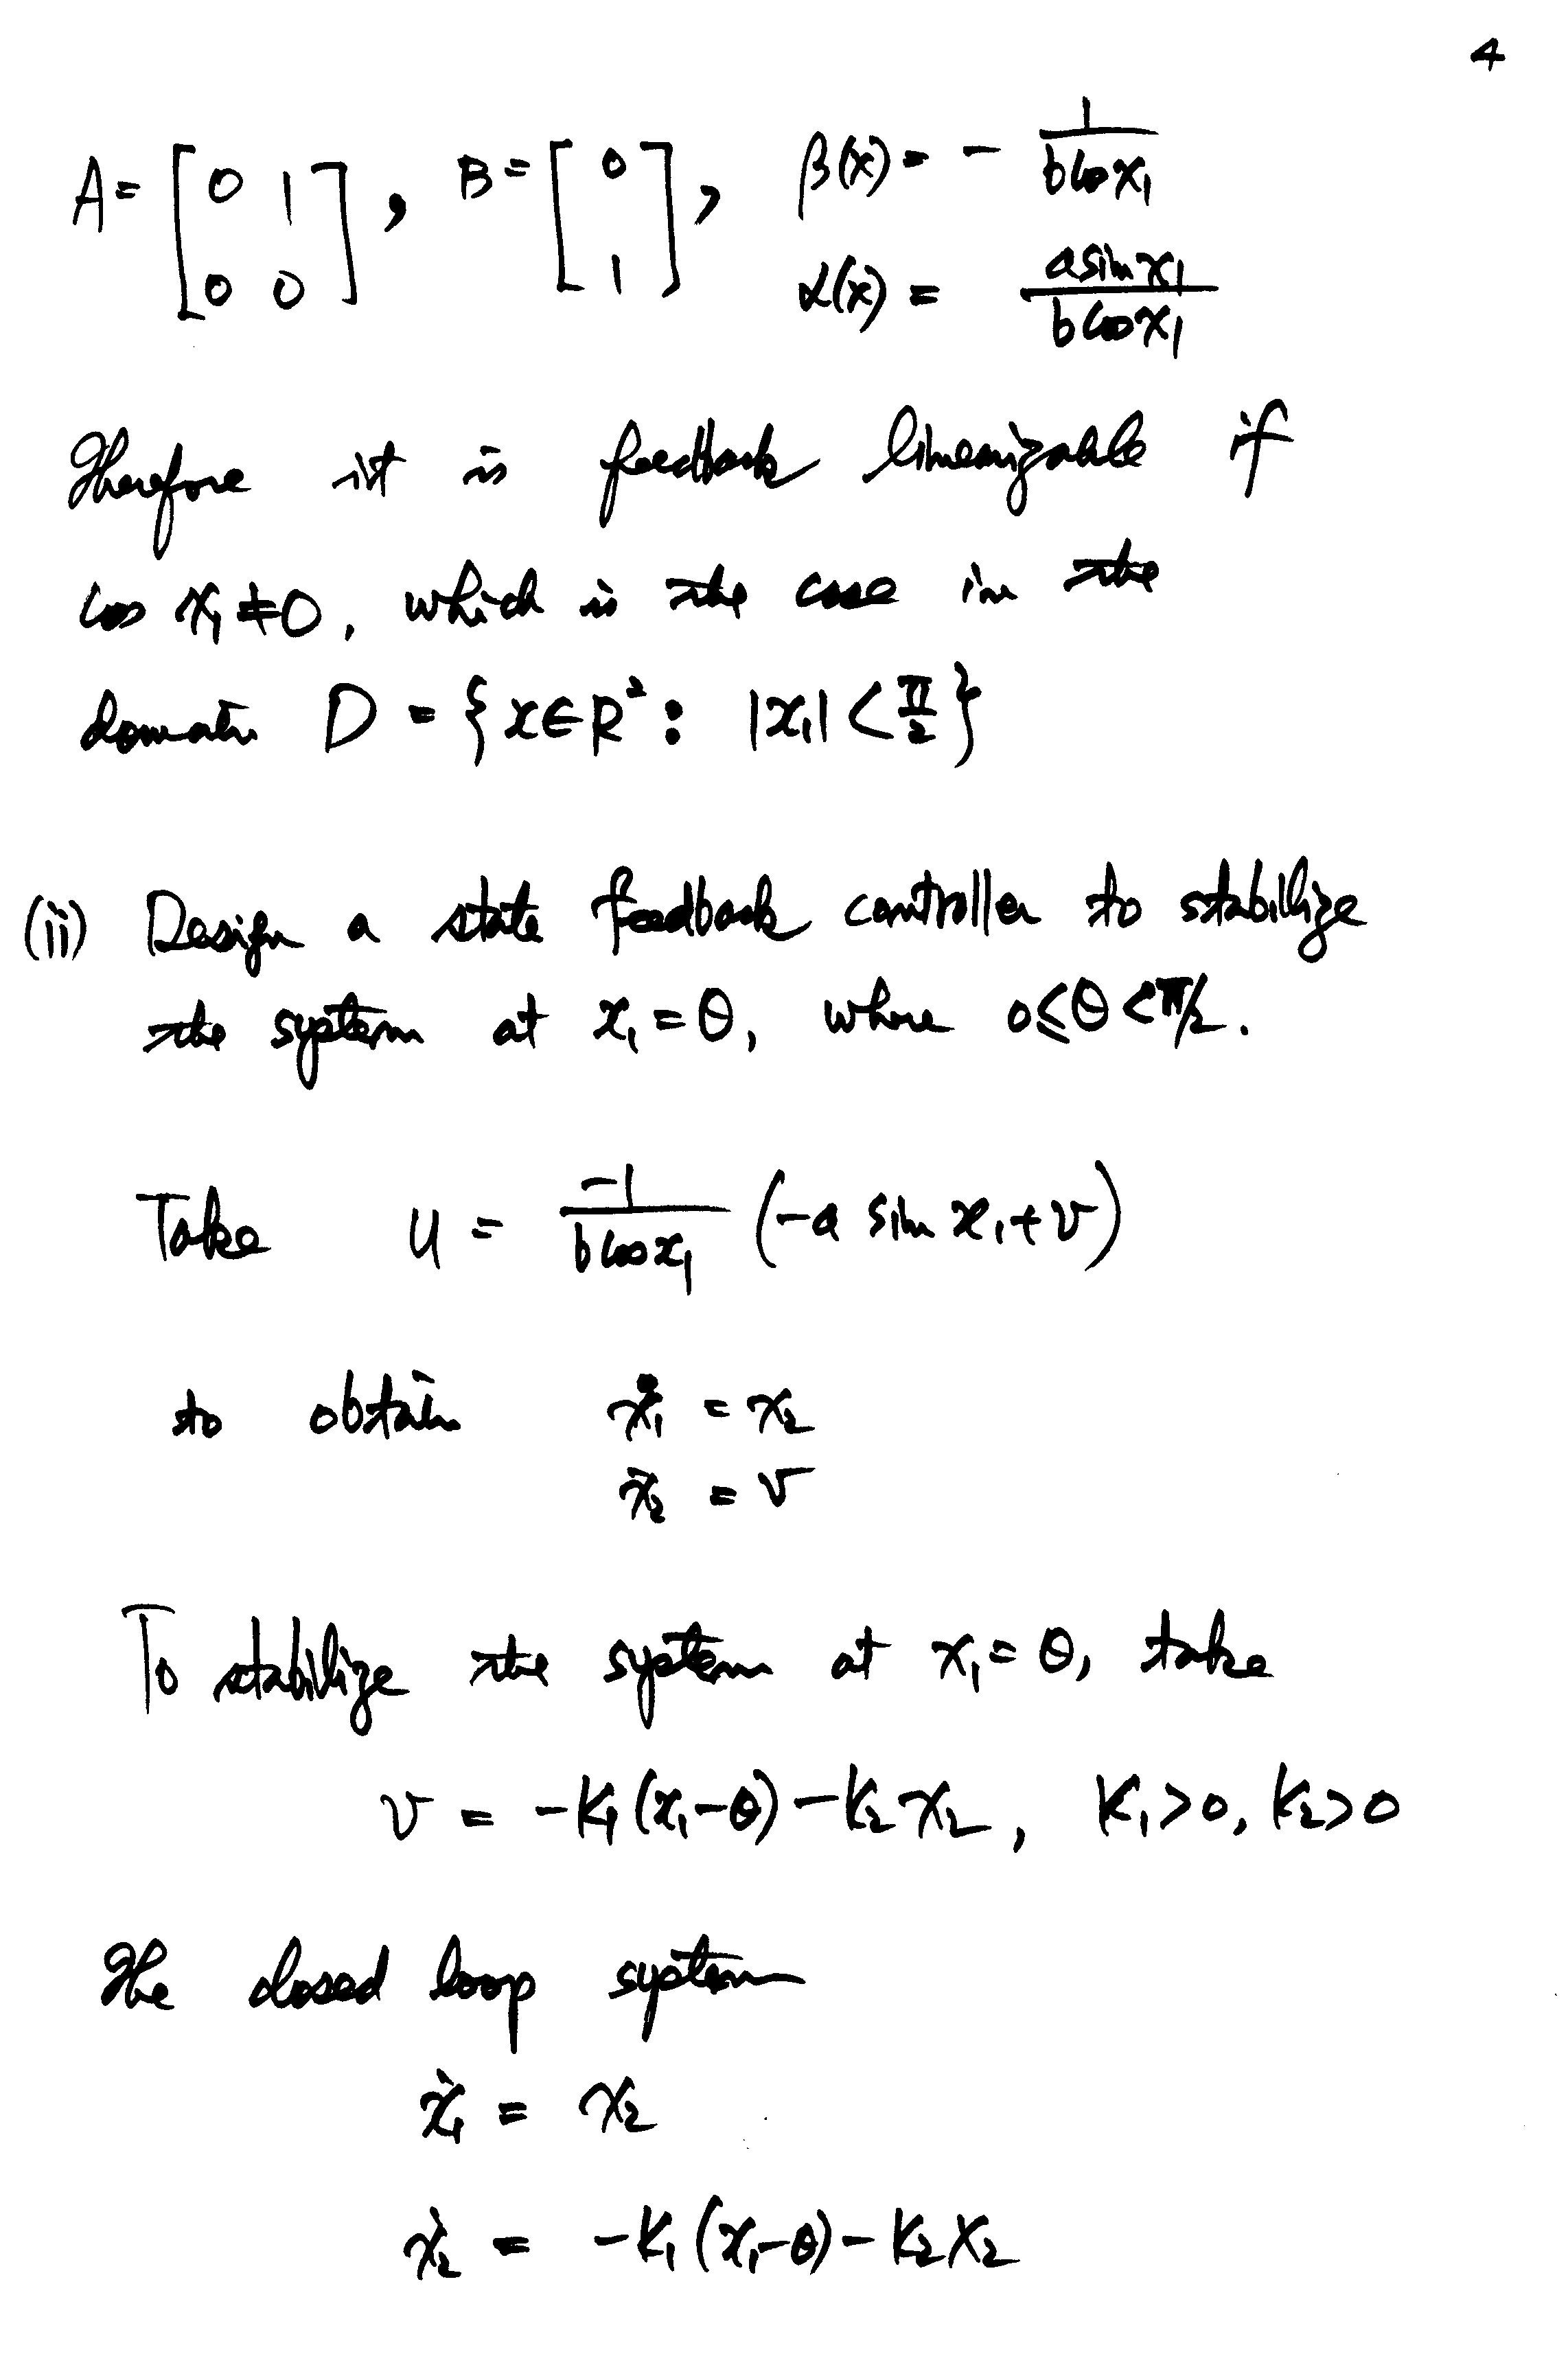 4
A = [0 1; 0 0], B = [0; 1], β(x) = - 1/(b cos x₁)
α(x) = a sin x₁/(b cos x₁)
Therefore it is feedback linearizable if
cos x₁ ≠ 0, which is the case in the
domain D = {x ∈ R² : |x₁| < π/2}
(ii) Design a state feedback controller to stabilize
the system at x₁ = θ, where 0 ≤ θ < π/2.
Take u = -1/(b cos x₁) (-a sin x₁ + v)
to obtain ẋ₁ = x₂
ẋ₂ = v
To stabilize the system at x₁ = θ, take
v = -K₁(x₁-θ) - K₂x₂, K₁>0, K₂>0
The closed loop system
ẋ₁ = x₂
ẋ₂ = -K₁(x₁-θ) - K₂x₂